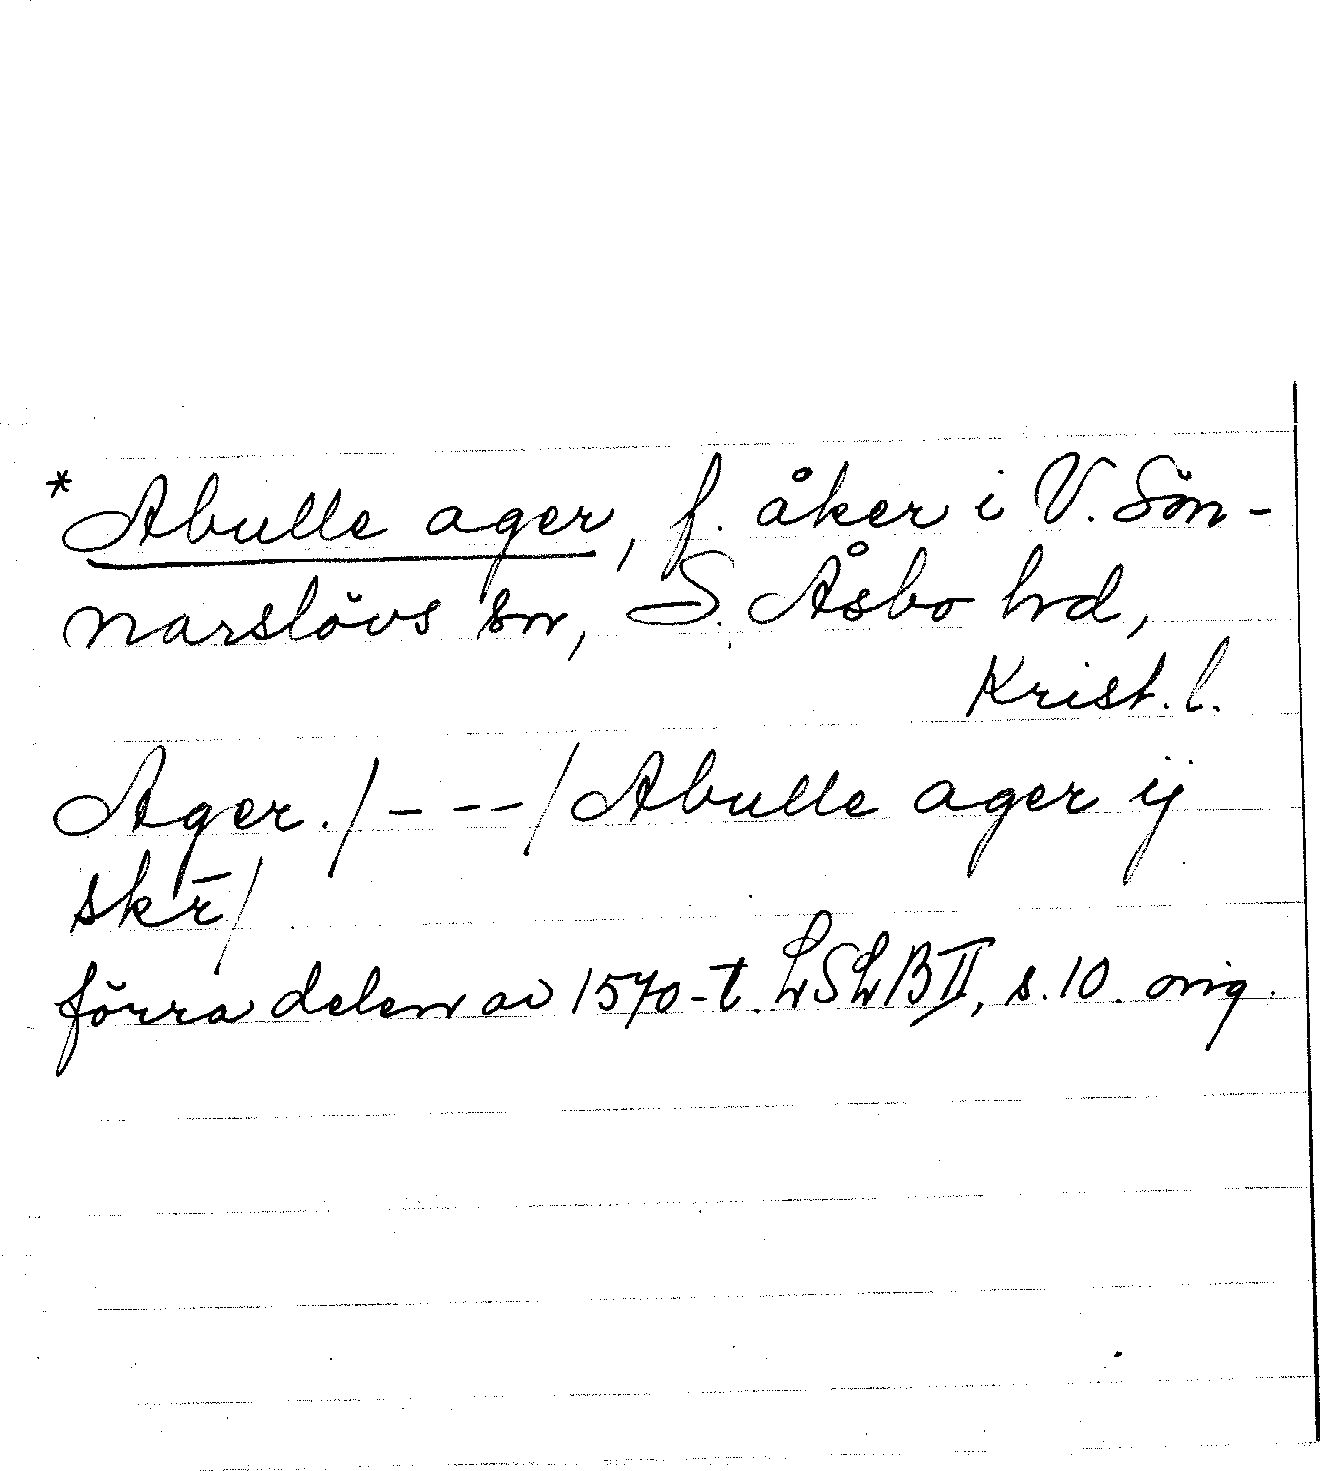 * Abulle ager, f. åker i V. Sön-
narslövs sn, S. Åsbo hd,
Krist. l.
Ager. / - - - / Abulle ager ij
skr̄ /
förra delen av 1570-t. LSLB II, s. 10. orig.